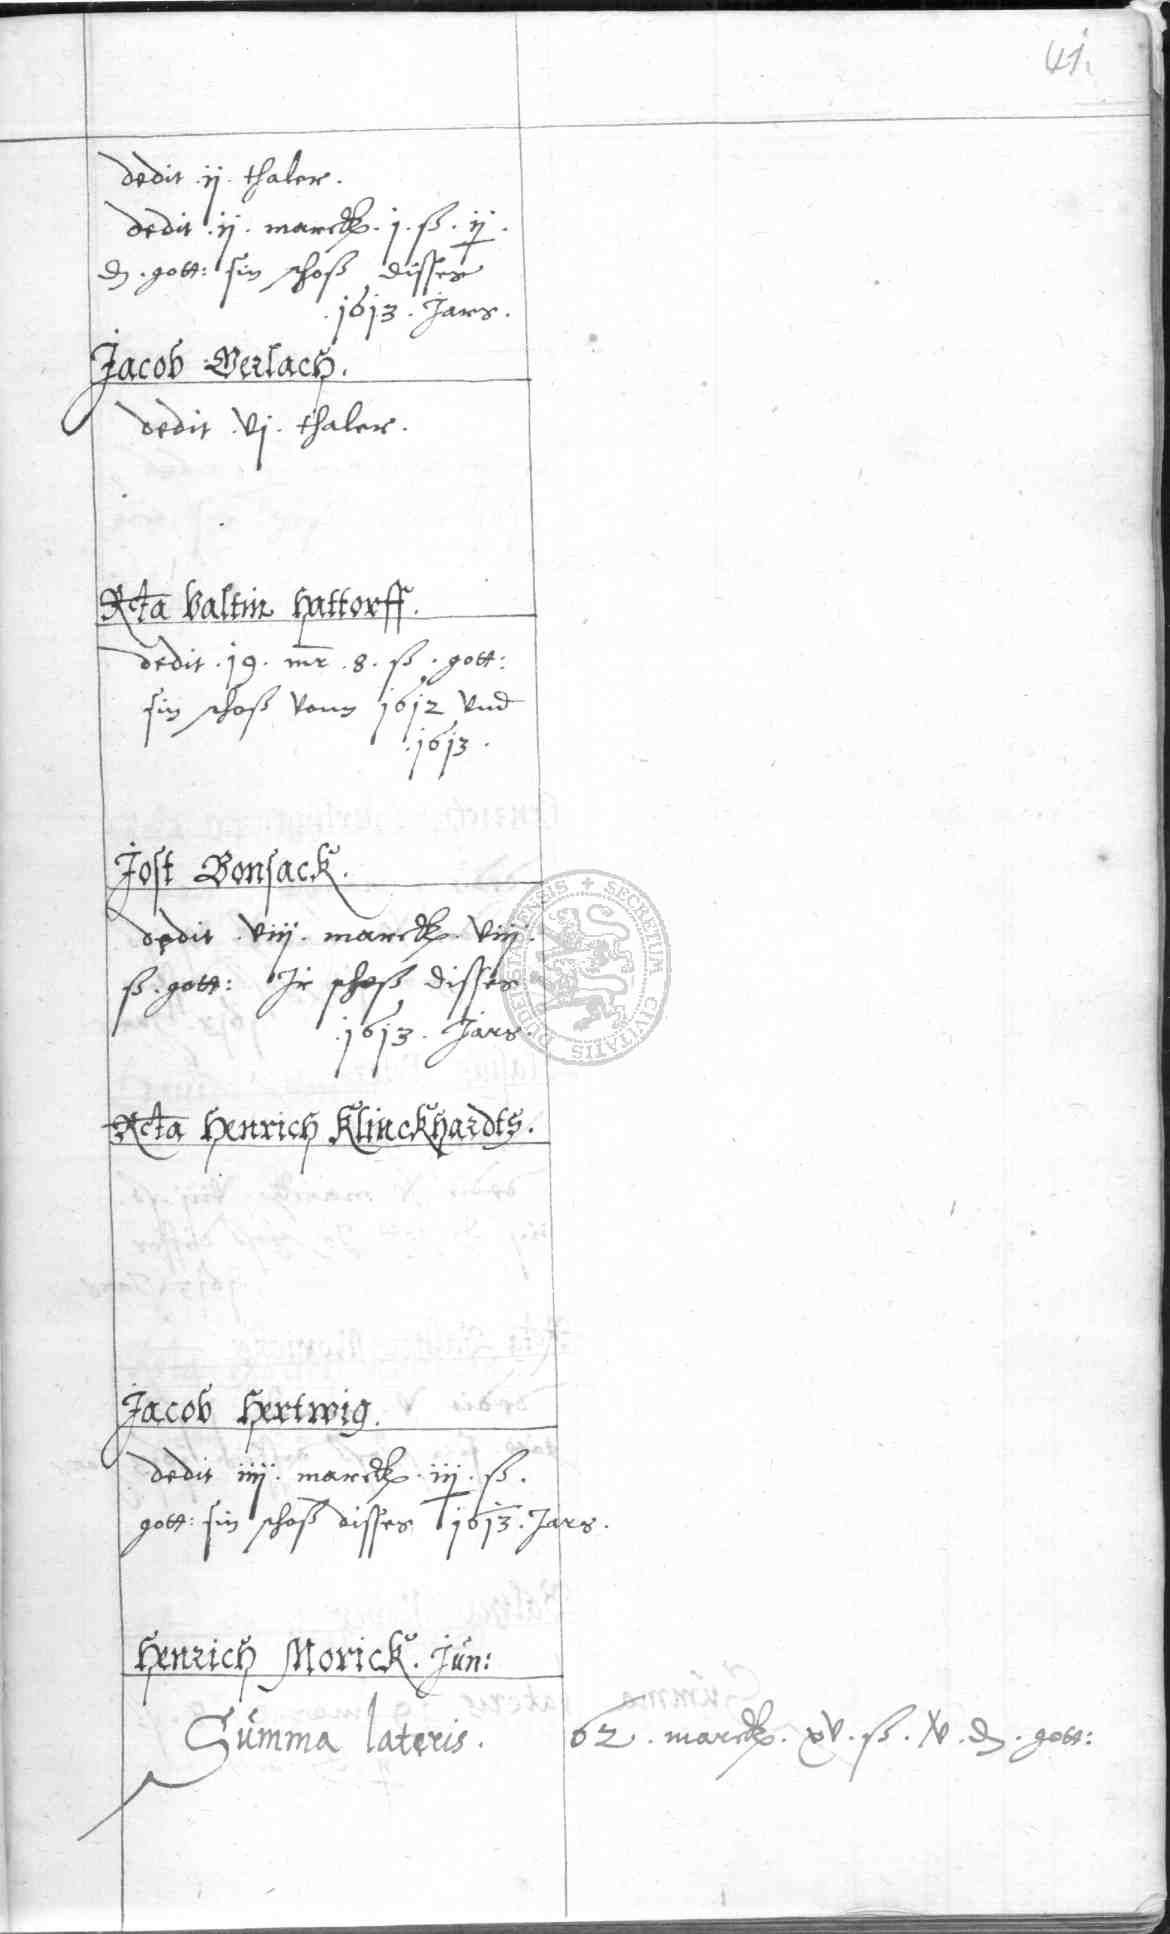 41.
dedit .ij. thaler.
dedit .ij. marck. j. ß. ij.
₰. gott: sin schoß disses
.1613. Jars.
Jacob Gerlach.
dedit .vj. thaler.
Rcta Valtin Hattorff.
dedit .19. mr .8. ß. gott:
sin schoß vonn 1612 vnd
.1613.
Jost Bonsack.
dedit .viij. marck. viij.
ß. gott: Jr schoß disses
.1613. Jars.
Rcta Henrich Klinckhardts.
Jacob Hertwig.
dedit iiij. marck. iij. ß.
gott: sin schoß disses 1613. Jars.
Henrich Morick. Jün:
Sümma lateris. 62. marck. xv. ß. ₰. gott:
SECRETUM CIVITATIS DUDERSTADENSIS